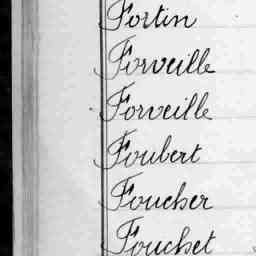 Fortin
Forveille
Forveille
Foubert
Foucher
Fouchet